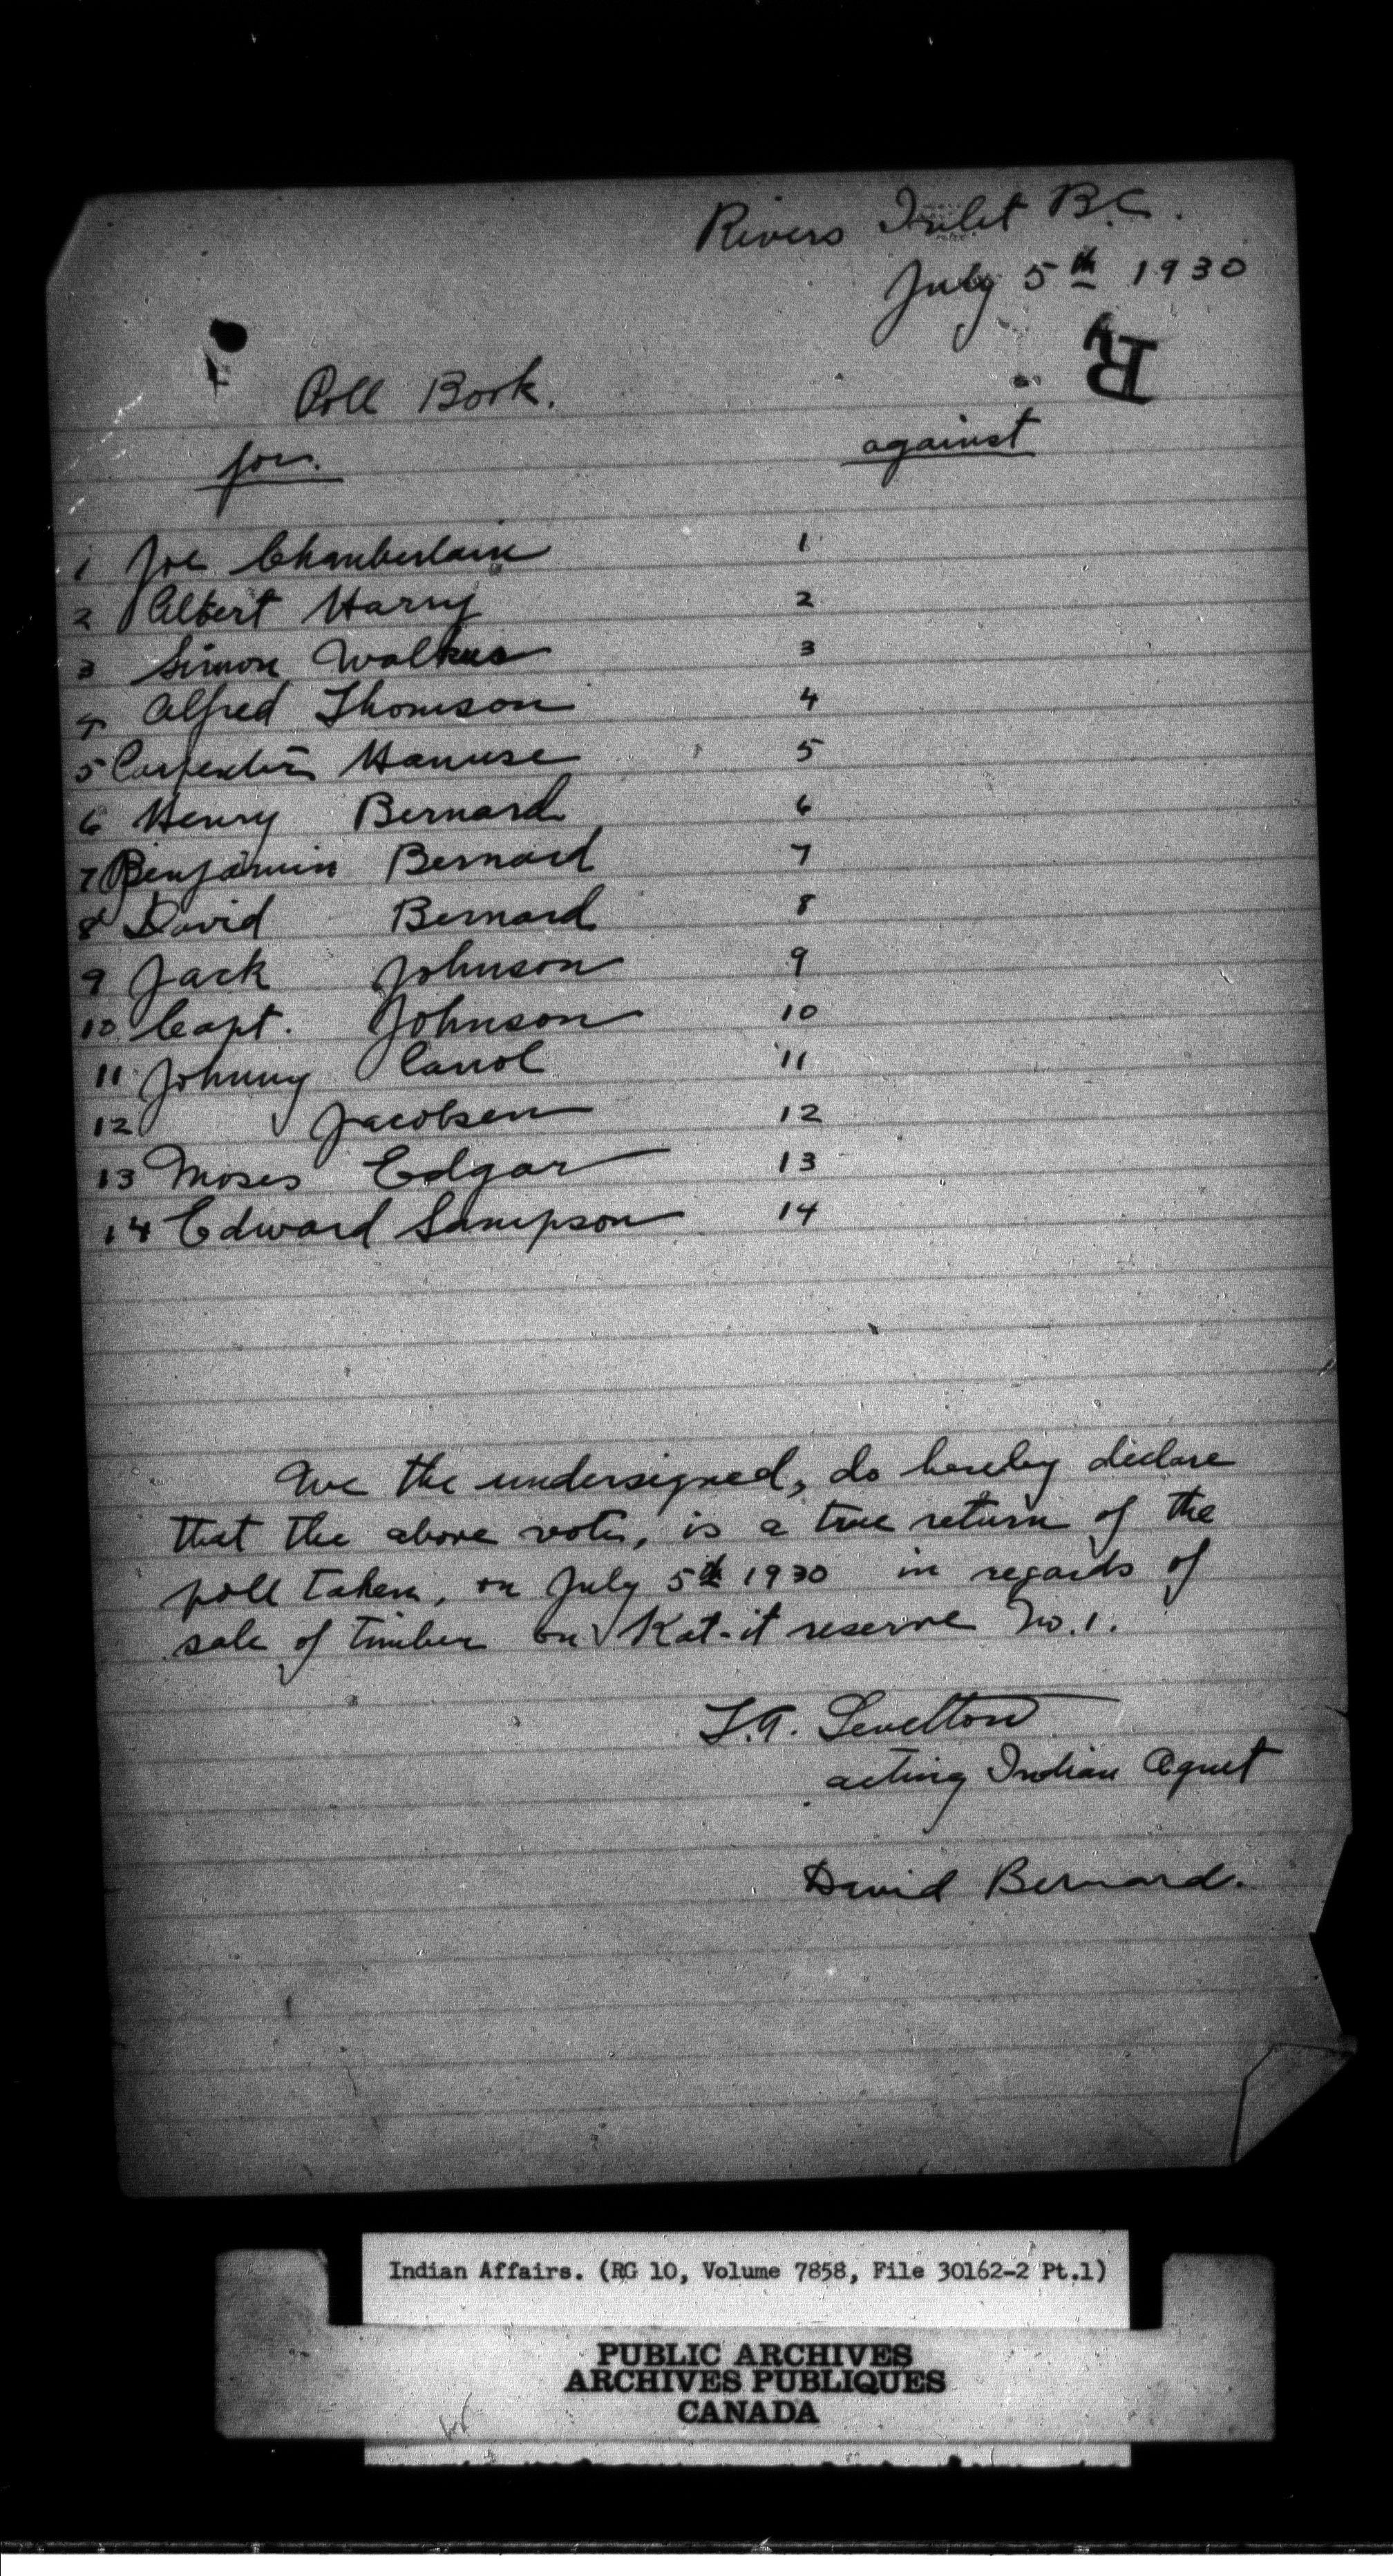 Rivers Inlet B.C.
July 5th 1930
R
Poll Book.
for. against
1 Joe Chamberlain 1
2 Albert Harry 2
3 Simon Walkus 3
4 Alfred Thomson 4
5 Carpenter Hanuse 5
6 Henry Bernard 6
7 Benjamin Bernard 7
8 David Bernard 8
9 Jack Johnson 9
10 Capt. Johnson 10
11 Johnny Carrol 11
12 Jacobsen 12
13 Moses Edgar 13
14 Edward Sampson 14
We the undersigned, do hereby declare
that the above vote, is a true return of the
poll taken, on July 5th 1930 in regards of
sale of timber on Kat-it reserve No. 1.
acting Indian Agent
David Bernard.
Indian Affairs. (RG 10, Volume 7858, File 30162-2 Pt.1)
PUBLIC ARCHIVES
ARCHIVES PUBLIQUES
CANADA